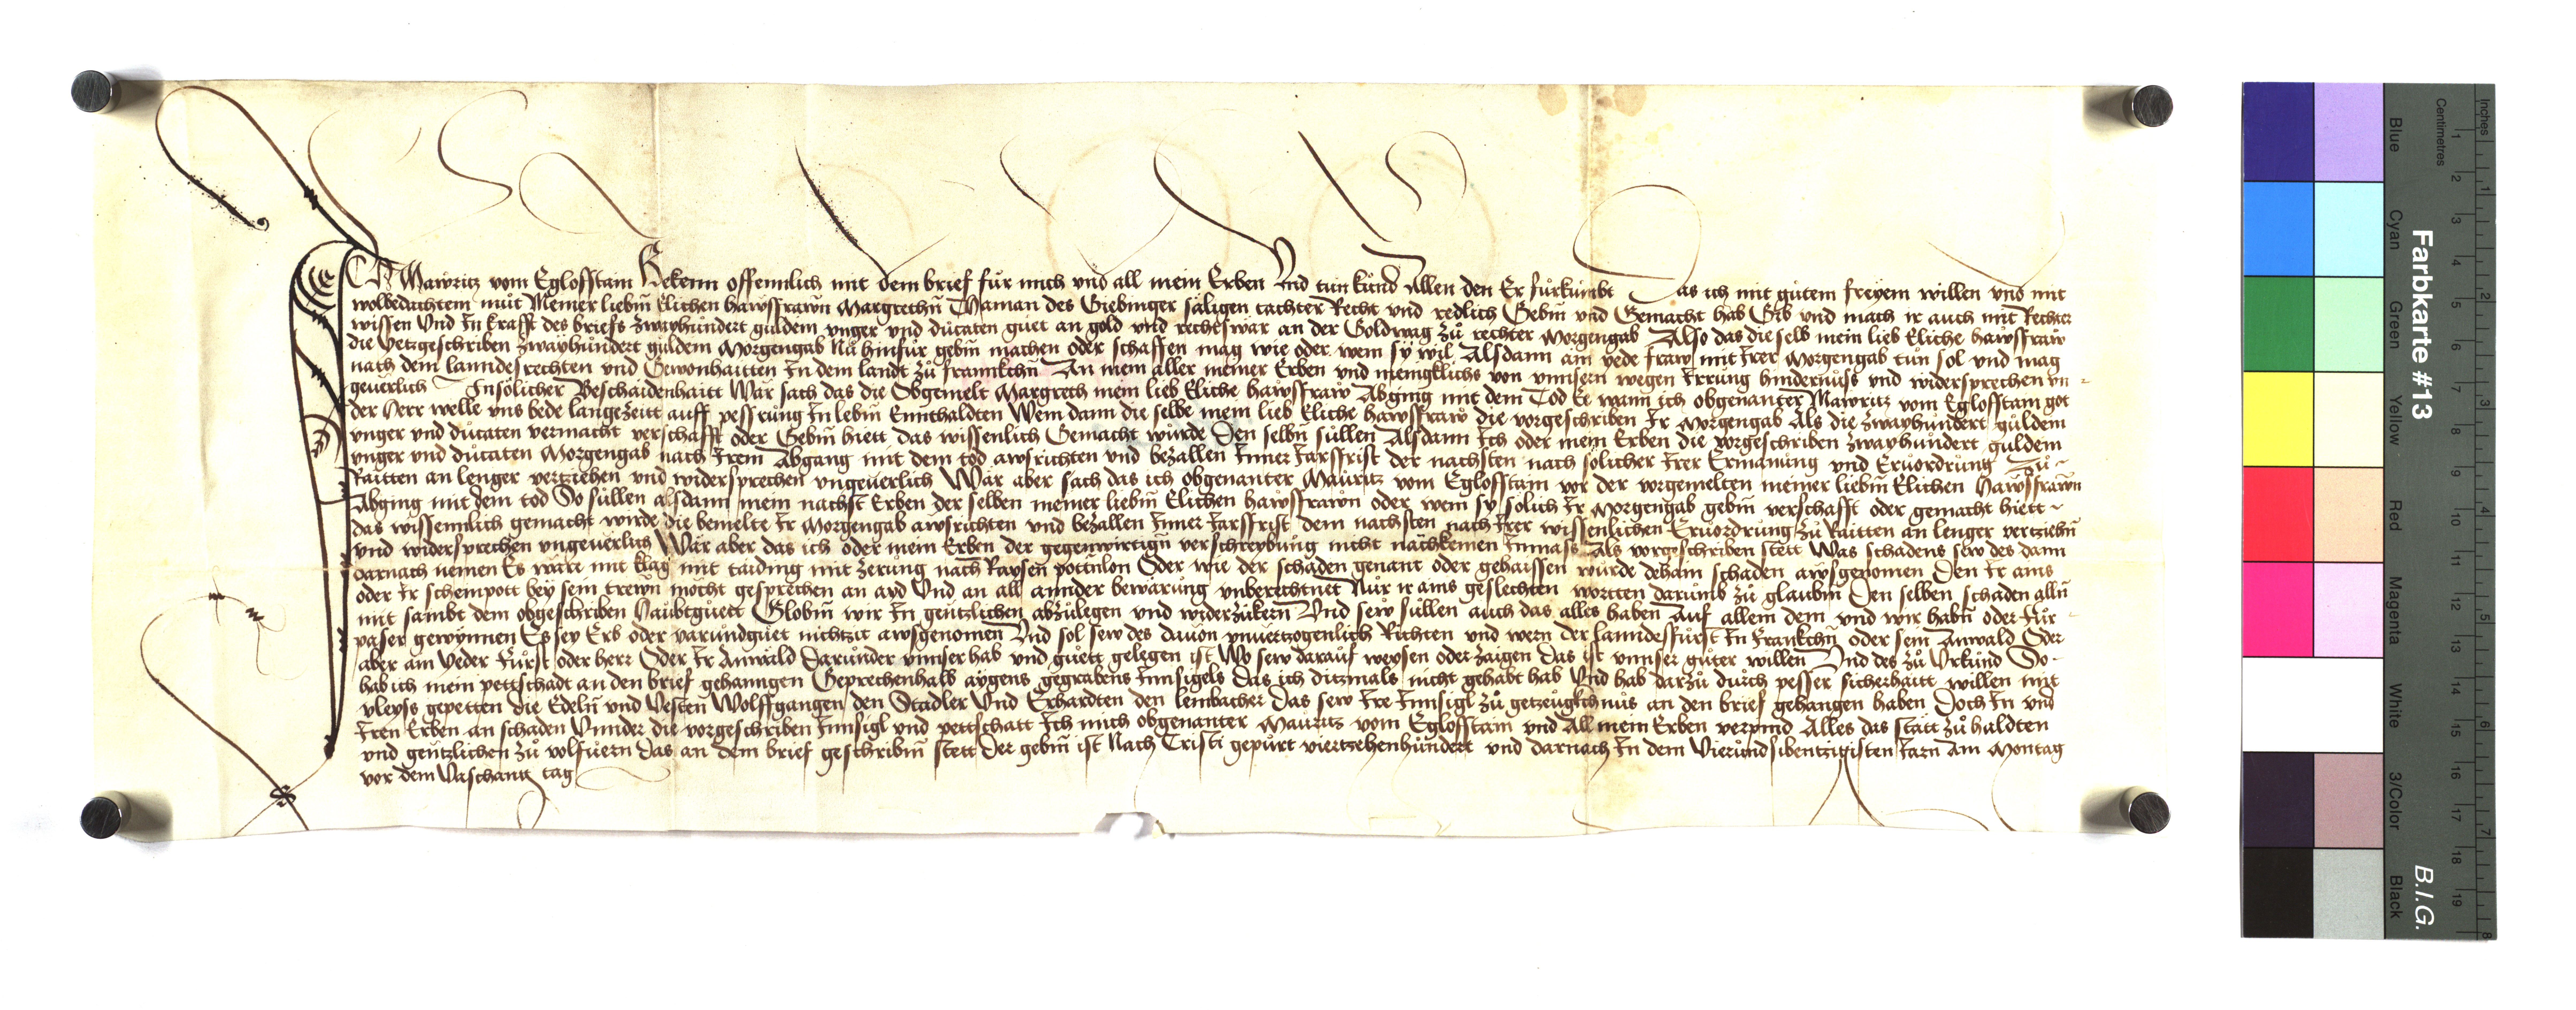 Ich Mawritz vom Eglofstain Bekenn offennlich mit dem brief für mich vnd all mein Erben Vnd tun kund Allen den Er fürkumbt Das ich mit gutem freyem willen vnd mit
wolbedachtem mut Meiner liebn̄ Elichen hawsfrawn̄ Margrethn̄ Thaman des Giebinger säligen tachter Recht vnd redlich Gebn̄ vnd Gemacht hab Gib vnd mach ir auch mit Rechter
wissen Vnd In krafft des briefs zwayhundert guldem vnger vnd ducaten guet an gold vnd rechtswär an der Goldwag zu rechter Morgengab Also das die selb mein lieb Eliche hawsfraw
die Yetzgeschriben zwayhundert guldem Morgengab Nu hinfür gebn̄ machen oder schaffen mag wie oder wem sy wil Alsdann ain yede fraw mit Irer Morgengab tun sol vnd mag
nach dem lanndesrechten vnd Gewonhaitten In dem landt zu frannkchn̄ An mein aller meiner Erben vnd meingklichs von vnnsern wegen Irrung hindernuss vnd widersprechen vn-
geuerlich Insölicher Beschaidenhaitt Wär sach das die Obgemelt Margreth mein lieb Eliche hawsfraw Abging mit dem Tod Ee wann ich obgenanter Mawritz vom Eglofstam got
der Herr welle vns bede langezeitt auff pessrung In lebn̄ Ennthaldten Wem dann die selbe mein lieb Eliche hawsfraw die vorgeschriben Ir Morgengab Als die zwayhundert guldem
vnger vnd ducaten vermacht verschafft oder Gebn̄ hiett das wissenlich Gemacht würde Den selbn̄ süllen Alsdann Ich oder mein Erben die vorgeschriben zwayhundert guldem
vnger vnd ducaten Morgengab nach Irem Abgang mit dem tod awsrichten vnd bezallen Inner Jarsfrist der nachsten nach sölicher Irer Ermanung vnd Eruordrung Zu
Raitten an lenger vertziehen vnd widersprechen vngeuerlich Wär aber sach das ich obgenanter Mauritz vom Eglofstain vor der vorgemelten meiner liebn̄ Elichen Hawsfrawn̄
Abging mit dem tod So süllen alsdann mein nachst Erben der selben meiner liebn̄ Elichen hawsfrawn oder wem sy sölich Ir Morgengab gebn̄ verschafft oder gemacht hiett
das wissennlich gemacht wirde die bemelte Ir Morgengab awsrichten vnd bezallen Inner Jarsfrist dem nachsten nach Irer wissenlichen Eruordrung zu Raitten an lenger vertziehn̄
vnd widersprechen vngeuerlich Wär aber das ich oder mein Erben der gegenwirtign̄ verschreybung nicht nachkemen Inmass Als vorgeschriben stett Was schadens sew des dann
darnach nemen Es wäre mit klag mit taiding mit zerung nach Raysen pottnlon Oder wie der schaden genant oder gehaissen würde dehain schaden awsgenomen Den Ir ains
oder Ir scheinpott bey sein trewn mocht gesprechen an ayd Vnd an all annder bewärung vnberechtnet Nur ir ains geslechten wortten darumb zu glaubn̄ Den selben schaden alln̄
mit sambt dem obgeschriben Haubtguett Globn̄ wir In gentzlichen abzulegen vnd widerzukern Vnd sew süllen auch das alles haben Auf allem dem vnd wir habn̄ oder für
paser gewynnen Es sey Erb oder varundguet nichtzit awsgenomen Vnd sol sew des dauon vnuertzogenlich Richten vnd wern der lanndesfürst In frankchn̄ oder sein Anwald Oder
aber ain Yeder fürst oder herr Oder Ir Anwald Darunder vnnser hab vnd guett gelegen ist Wo sew darauf weysen oder zaigen das ist vnnser guter willen Vnd des zu Vrkund So
hab ich mein pettschadt an den brief gehanngen Geprechenhalb aygens gegrabens Innsigels Das ich ditzmals nicht gehabt hab Vnd hab darzu durch pesser sicherhaitt willen mit
vleyss gepetten die Edeln̄ vnd Vesten Wolffgangen den Stadler Vnd Erhardten den leinbacher Das sew Ire Innsigl zu getzeugkchnus an den brief gehangen haben Doch In vnd
Iren Erben an schaden Vnnder die vorgeschriben Innsigl vnd pettschatt Ich mich obgenanter Mauritz vom Eglofstain vnd All mein Erben verpind Alles das statt zu haldten
vnd gentzlichen zu volfuern das an dem brief geschribn̄ stett Der gebn̄ ist Nach Cristi gepurt viertzehenhundert vnd darnach In dem Vierundsibentzigisten Jarn Am Montag
vor dem Vaschang tag
Farbkarte #13
B.I.G.
Centimetres
Inches
Blue
Cyan
Green
Yellow
Red
Magenta
White
3/Color
Black
1 2 3 4 5 6 7 8 9 10 11 12 13 14 15 16 17 18 19
1 2 3 4 5 6 7 8